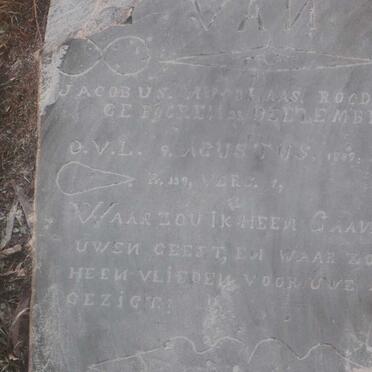 VAN
JACOBUS. NICOLAAS. ROOD
GEBOOREN 23 DECEMBE
O.V.L. 9. AGUSTUS. 1889.
Ps. 139, VERS. 7,
WAAR ZOU IK HEEN GAAN
UWEN GEEST, EN WAAR ZO
HEEN VLIEDEN VOOR UWE
GEZIGT: